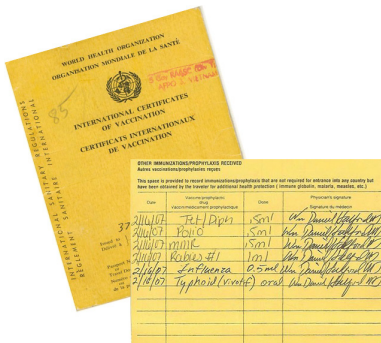 WORLD HEALTH ORGANIZATION
ORGANISATION MONDIALE DE LA SANTÉ
85
INTERNATIONAL CERTIFICATES
OF VACCINATION
CERTIFICATS INTERNATIONAUX
DE VACCINATION
INTERNATIONAL SANITARY REGULATIONS
RÈGLEMENT SANITAIRE INTERNATIONAL
37
Issued to
OTHER IMMUNIZATIONS/PROPHYLAXIS RECEIVED
Autres vaccinations/prophylaxies reçues
This space is provided to record immunizations/prophylaxis that are not required for entrance into any country but
have been obtained by the traveler for additional health protection ( immune globulin, malaria, measles, etc.)
Date Vaccine prophylactic drug Dose Physician's signature
Vaccin/médicament prophylactique Signature du médecin
2/16/07 Tet/Diph .5ml Wm Daniel
2/16/07 Polio .5ml Wm Daniel
2/16/07 MMR .5ml Wm Daniel
2/16/07 Rabies #1 1ml Wm Daniel
2/16/07 Influenza 0.5ml Wm Daniel
2/16/07 Typhoid (vivotif) oral Wm Daniel